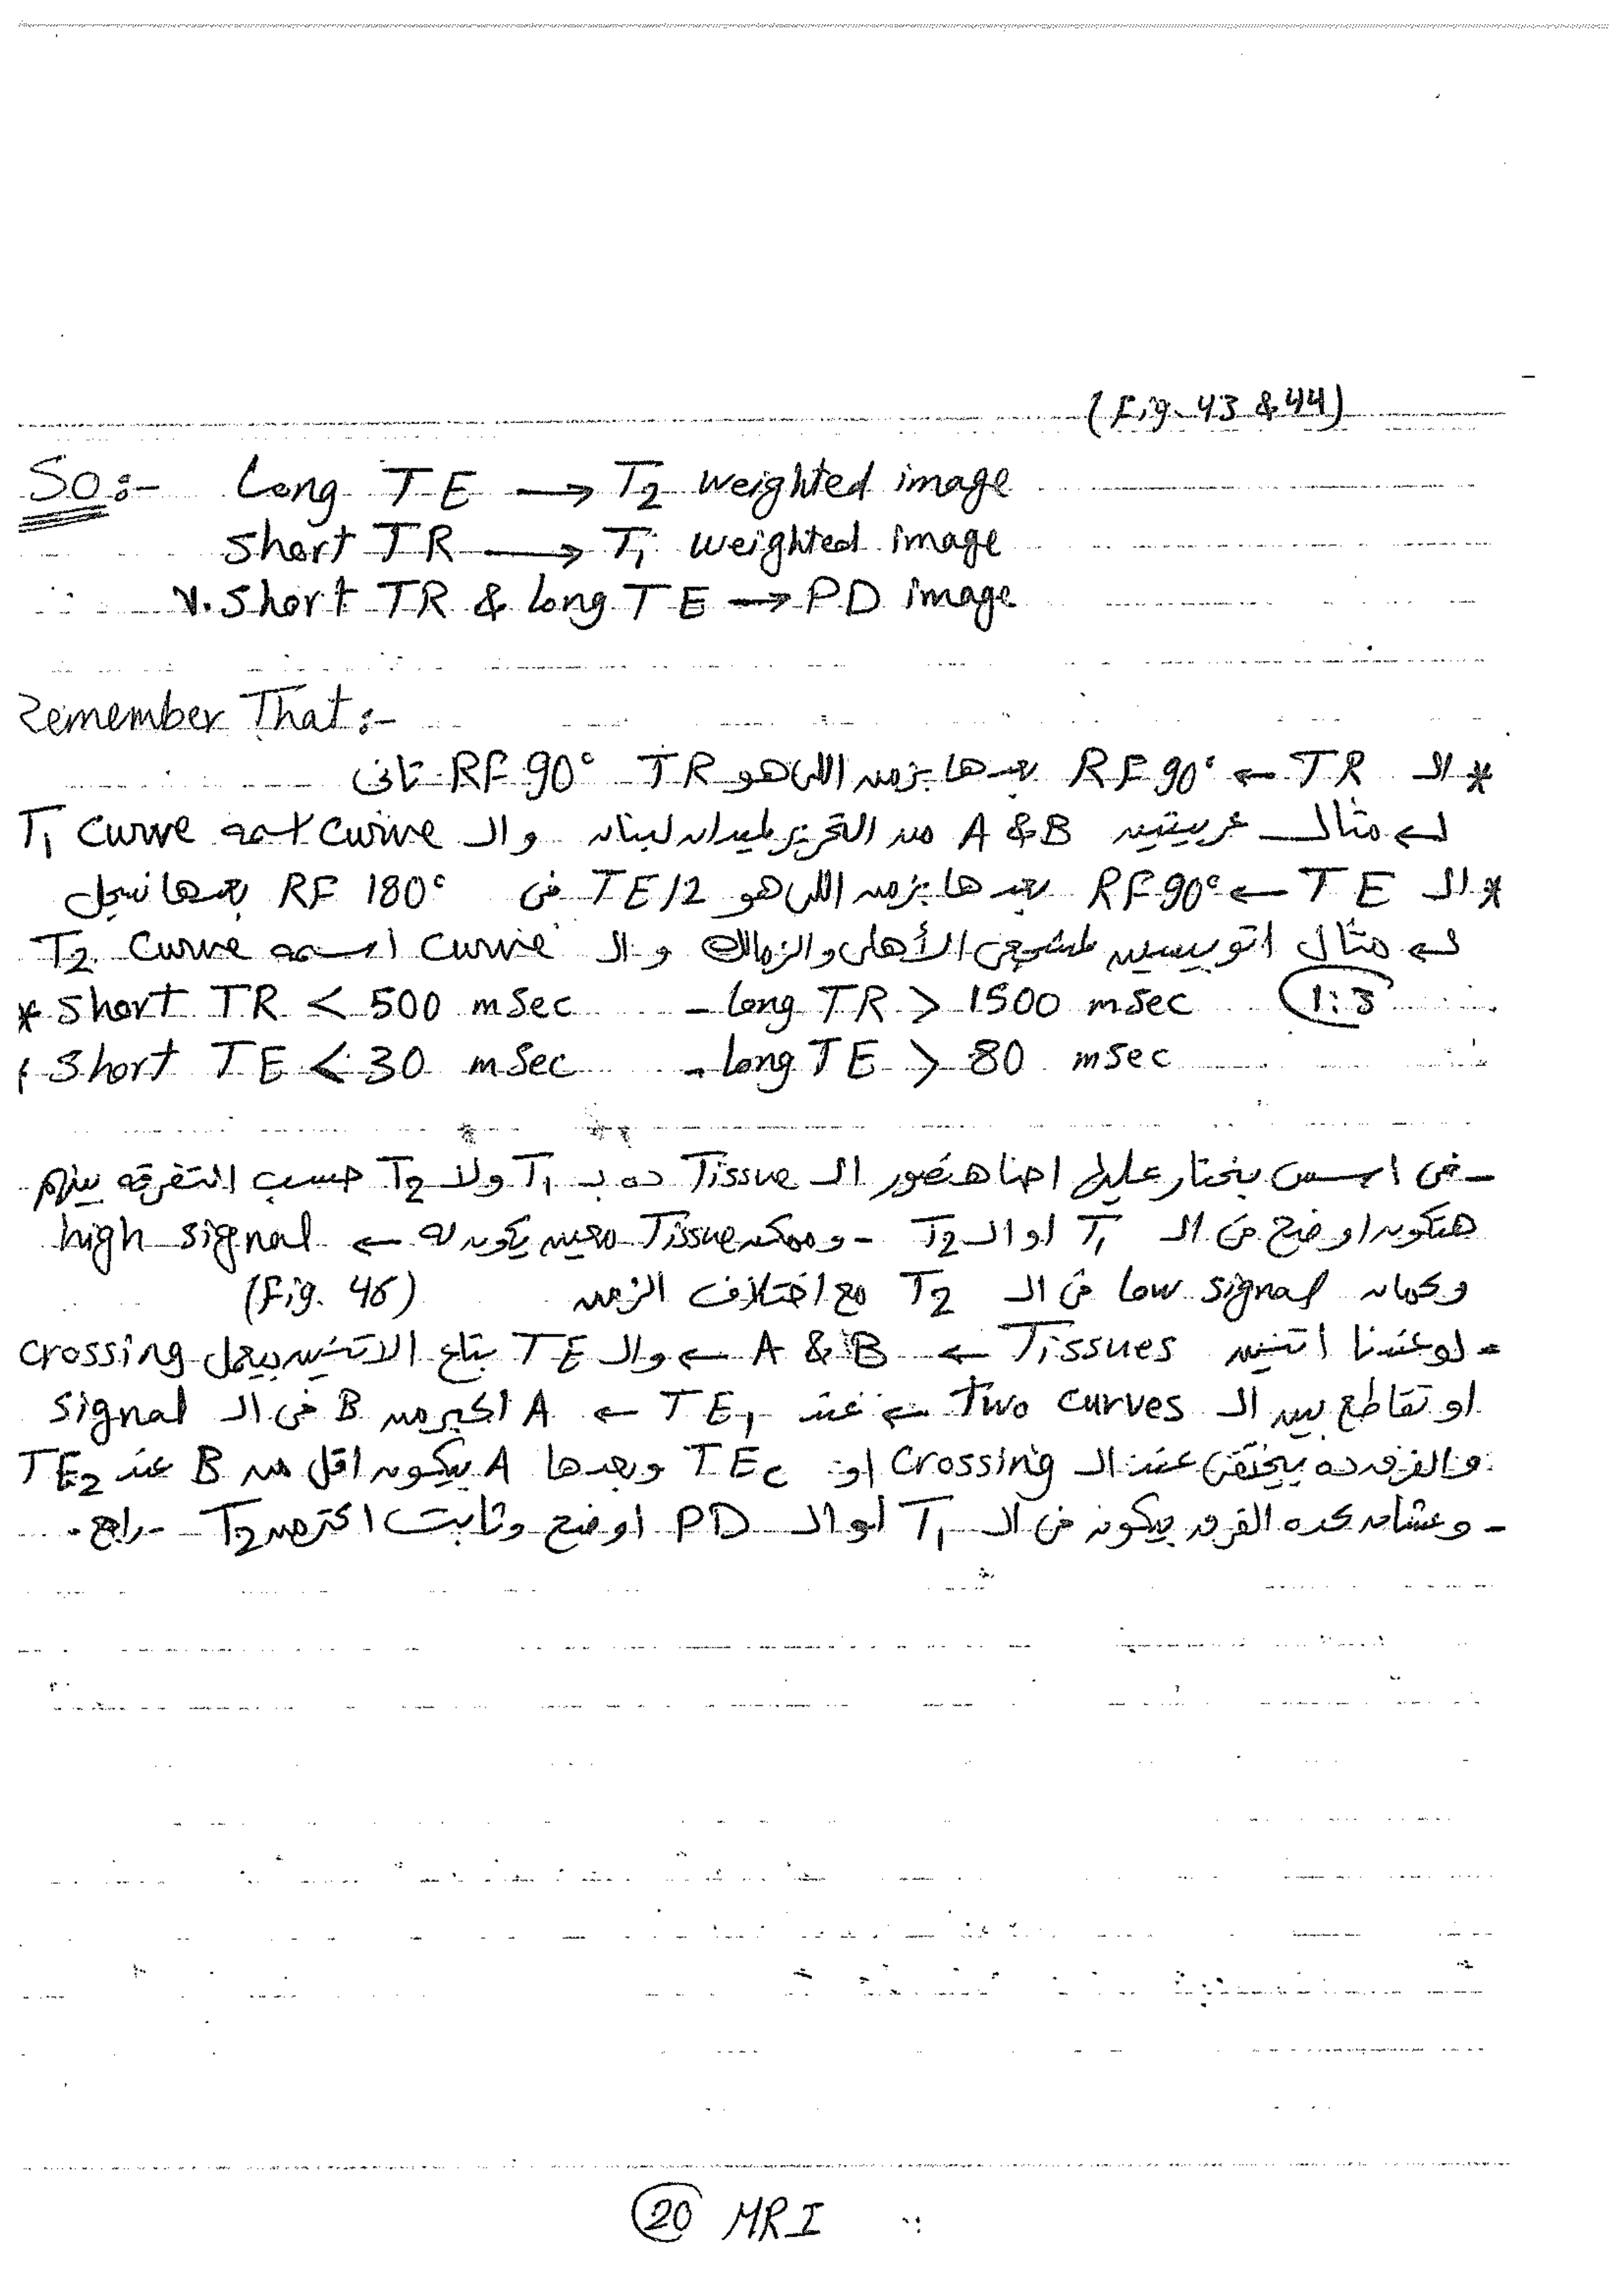 (Fig. 43 & 44)
So:- Long TE → T2 weighted image
Short TR → T1 weighted image
V. Short TR & long TE → PD image
Remember That:-
* الـ TR ← RF 90° بعدها بزمن اللى هو TR RF 90° تانى
لـ مثال عربيتين A & B من التحرير لميدان لبنان والـ curve اسمه T1 curve
* الـ TE ← RF 90° بعدها بزمن اللى هو TE/2 فى RF 180° بعدها نسجل
لـ مثال اتوبيسين لمشجعى الأهلى والزمالك والـ curve اسمه T2 curve
* Short TR < 500 msec - long TR > 1500 msec 1:3
* Short TE < 30 msec - long TE > 80 msec
- فى اسس بنختار عليها احنا هنصور الـ Tissue ده بـ T1 ولا T2 حسب التفرقه بينهم
هتكون اوضح فى الـ T1 او الـ T2 - وممكن Tissue معين يكون له ← high signal
وكمان low signal فى الـ T2 مع اختلاف الزمن (Fig. 46)
- لو عندنا اتنين Tissues ← A & B ← والـ TE بتاع الاتنين بيعمل crossing
او تقاطع بين الـ Two curves ← عند TE1 ← A اكبر من B فى الـ signal
والفرق ده بيختفى عند الـ Crossing او TEc وبعدها A بيكون اقل من B عند TE2
- وعشان كده الفرق بيكون فى الـ T1 او الـ PD اوضح وثابت اكتر من T2 - راجع.
20 MRI